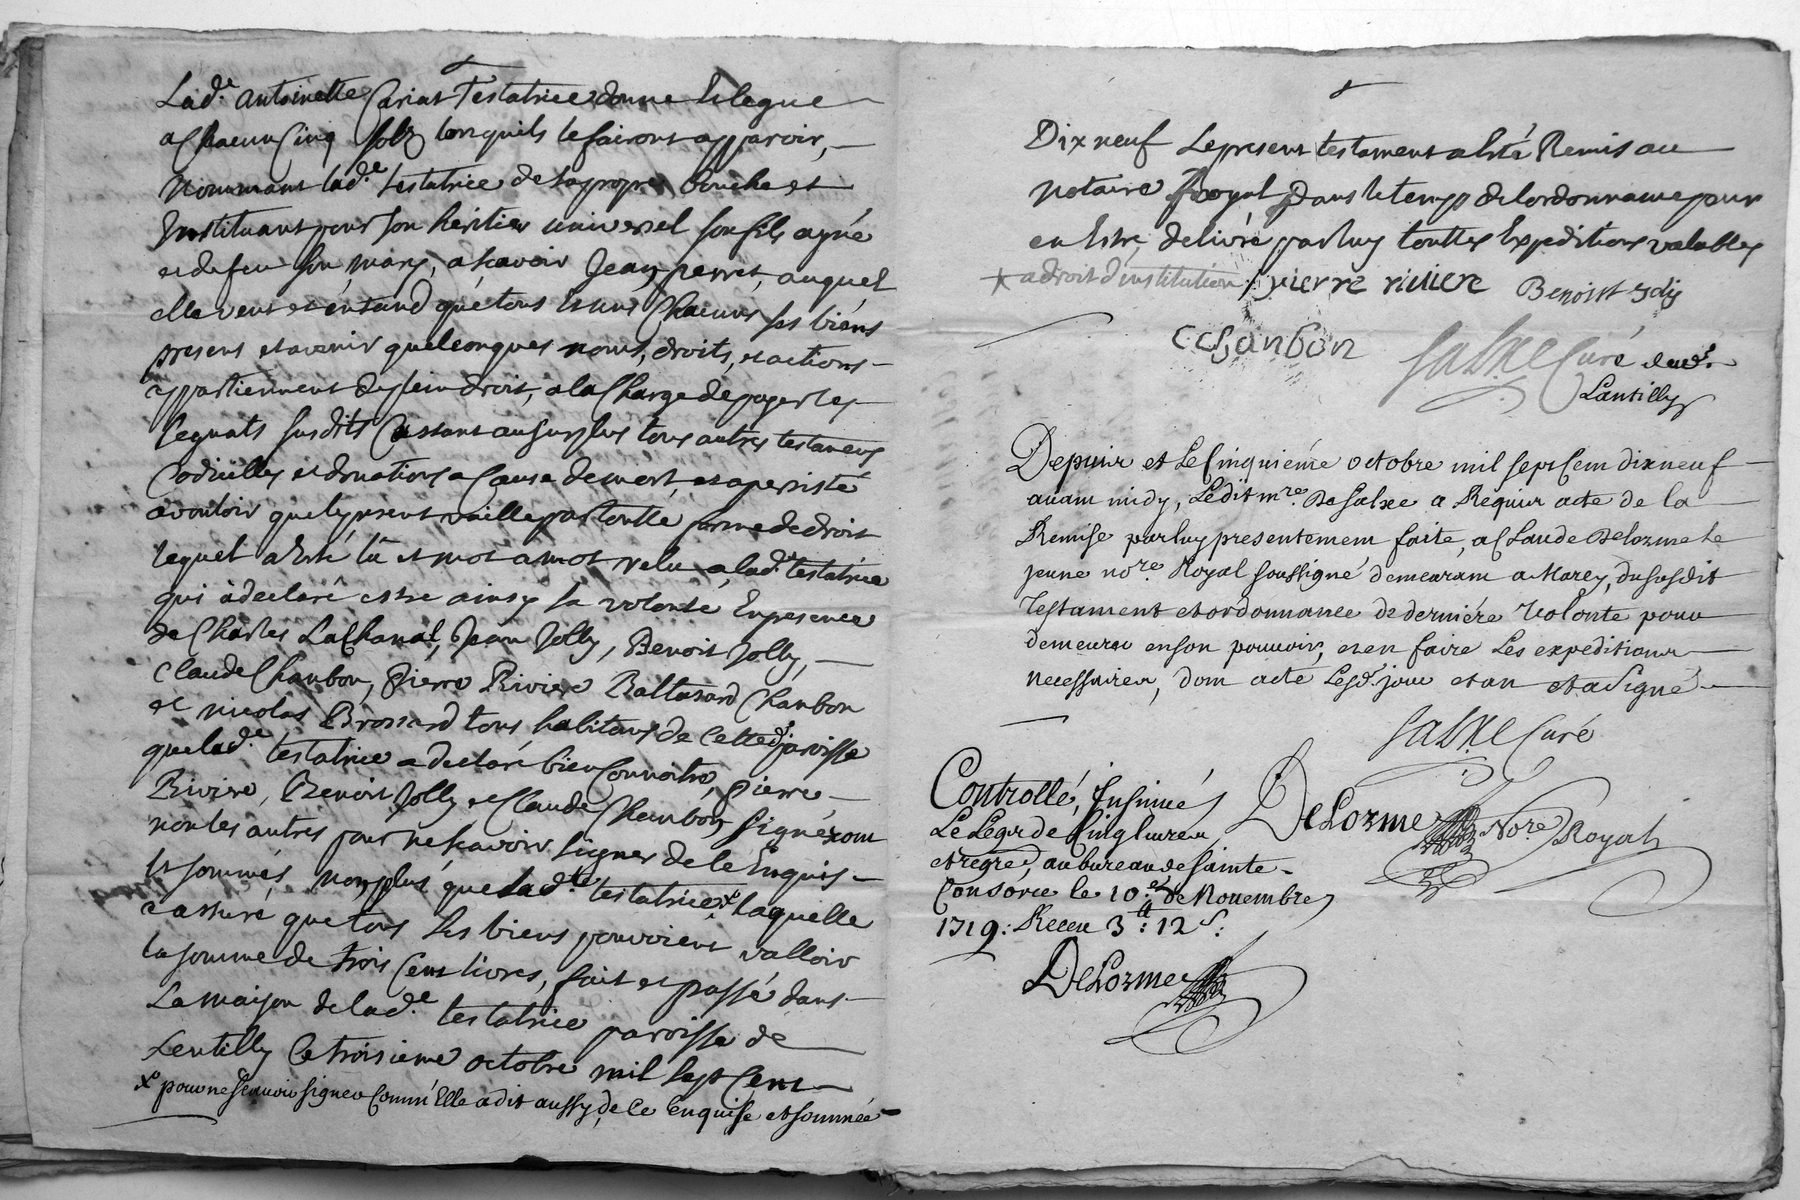 Lad.e antoinette Cariat Testatrice donne Et legue
a Chacun Cinq solz lorsquils le fairont apparoir,
Nommant lad.e testatrice de sa propre bouche et
Instituant pour son heritier universel son fils ayné
et de feu son mary, a scavoir Jean perret, auquel
elle veut et éntand que tous Et uns Chacuns ses biens
presens et avenir quelconques noms, droits, et actions
appartiennent de plein droit, a la Charge de payer les
legnats susdits Cassant au surplus tous autres testamens
Codicilles et donations a Cause de mort, et a persisté
a vouloir que le present vaille par toutte forme de droit
lequel a Esté lû et mot a mot relu a lad.e testatrice
qui à declaré estre ainsy sa volonté En presence
de Charles LaChanal, Jean Jolly, Benoit Jolly,
Claude Chanbon, Pierre Riviere Baltasard Chanbon
et nicolas Brossard tous habitans de Cette d. paroisse
que lad.e testatrice a declaré bien Connoitre, pierre
Riviere, Benoit Jolly et Claude Chanbon signéront
non les autres pour ne scavoir signer de le Enquis
Et sommés, non plus que lad.te testatrice x laquelle
a assuré que tous ses biens pouvoient valloir
la somme de trois Cent livres, fait et passé dans
La maison de lad.e testatrice paroisse de
Lentilly Ce troisieme octobre mil sept Cent
x pour ne scavoir signer Comm'Elle a dit aussy de Ce Enquise et sommée
Dix neuf Le present testament a Esté Remis au
notaire Royal dans le temps de lordonnance pour
en Estre delivré par luy touttes Expeditions valables
* a droit d'institution pierre riviere Benoist Jolly
C Chanbon
Salxe Curé dud.
Lantilly
Depuis et Le Cinquiéme octobre mil sept Cent dix neuf
avant midy, Ledit mre. De Salxe a Requis acte de la
Remise par luy presentement faite, a Claude Delorme le
jeune nore. Royal soussigné demeurant a Marcy, du susdit
Testament et ordonnance de derniére volonte pour
demeurer en son pouvoir, et en faire Les expeditions
necessaires, dont acte Lesd. jour et an et a signé
Salxe Curé
Controllé, Insinué
Le Legs de Cinq livres
et regré, au bureau de Sainte
Consorce le 10.e de Novembre
1719: Receu 3tt: 12s:
DeLorme Nore Royal
DeLorme